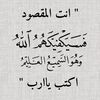 " انت المقصود
فَسَيَكْفِيكَهُمُ اللَّهُ
وَهُوَ السَّمِيعُ الْعَلِيمُ
اكتب ياارب "